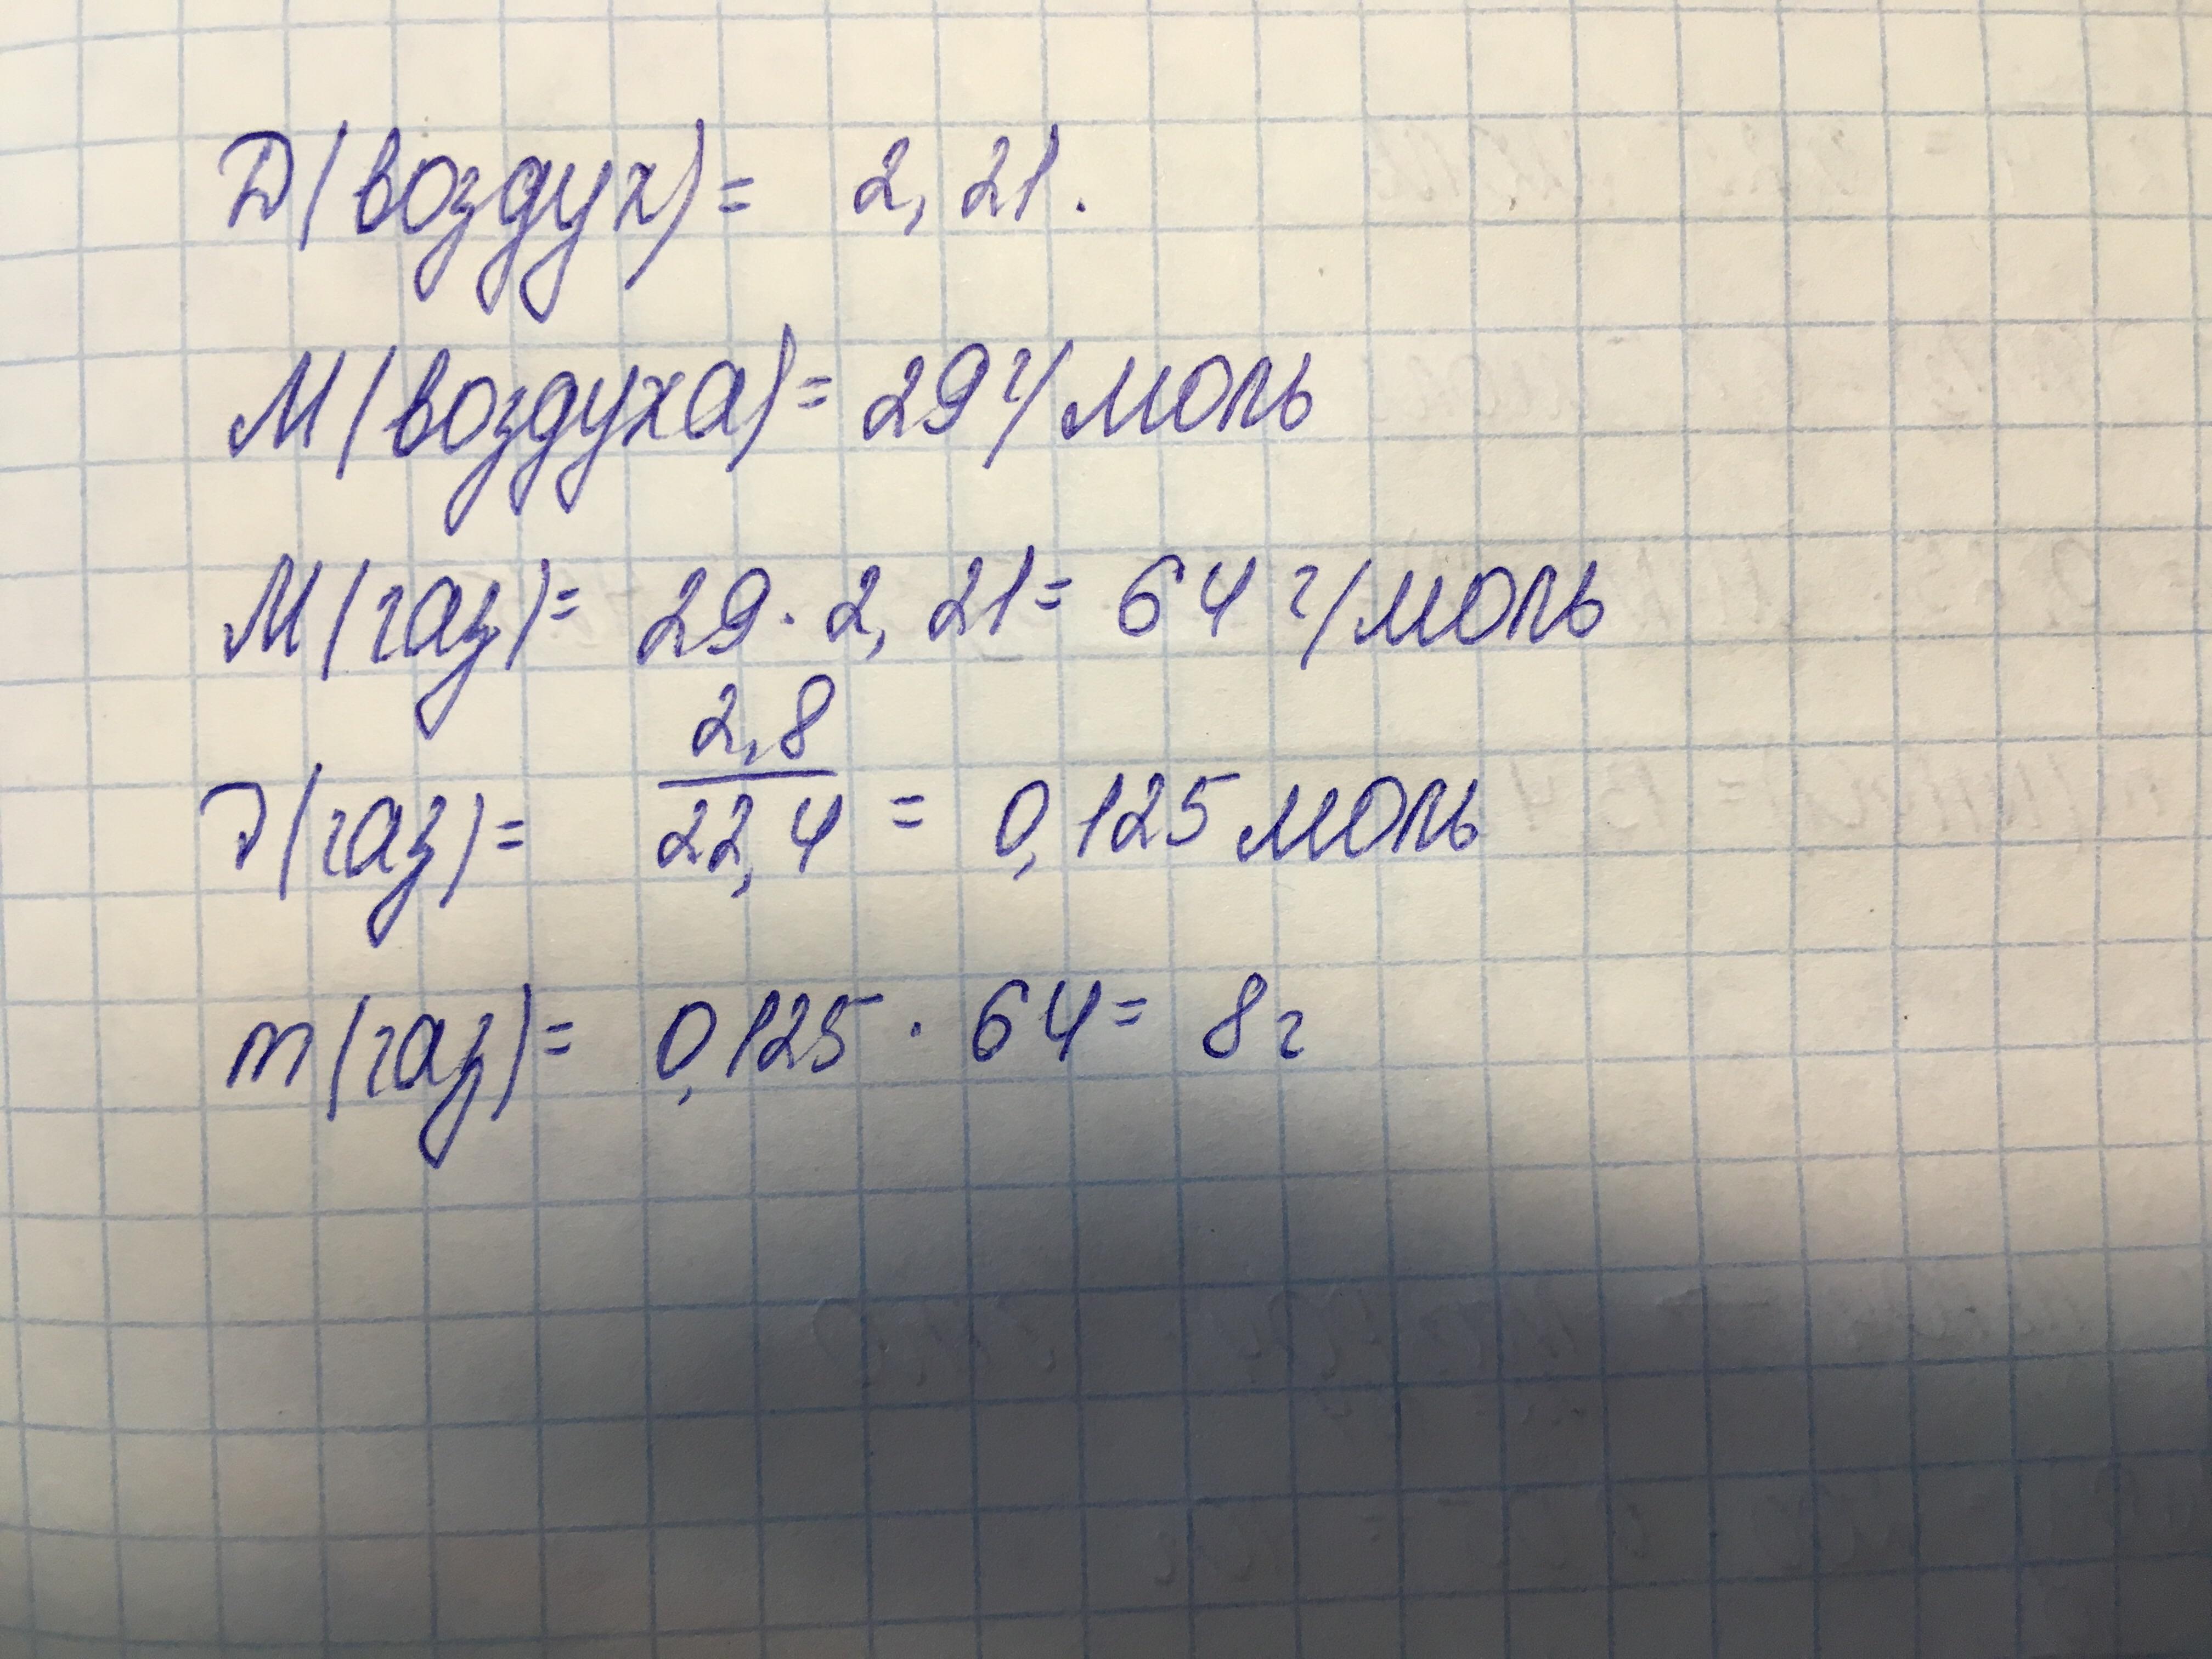 D(воздух) = 2,21.
M(воздуха) = 29 г/моль
M(газ) = 29 · 2,21 = 64 г/моль
ν(газ) = 2,8 / 22,4 = 0,125 моль
m(газ) = 0,125 · 64 = 8 г